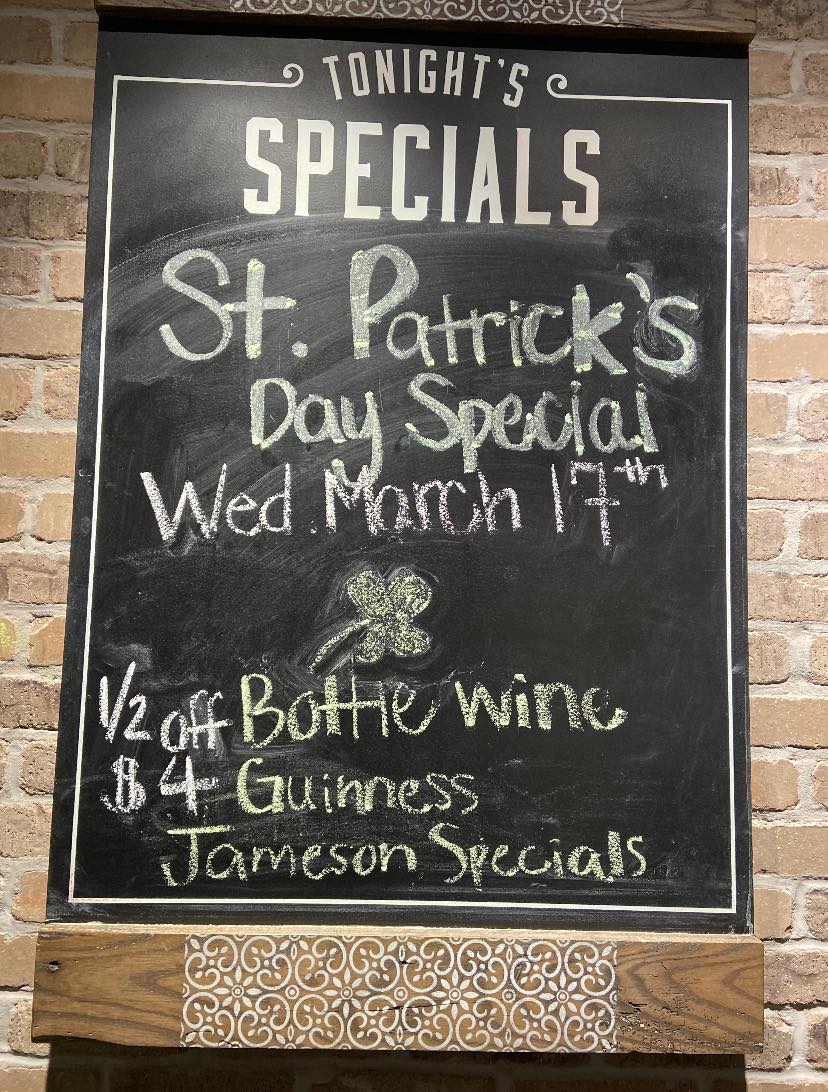 TONIGHT'S
SPECIALS
St. Patrick's
Day Special
Wed March 17th
1/2 off Bottle wine
$4 Guinness
Jameson Specials